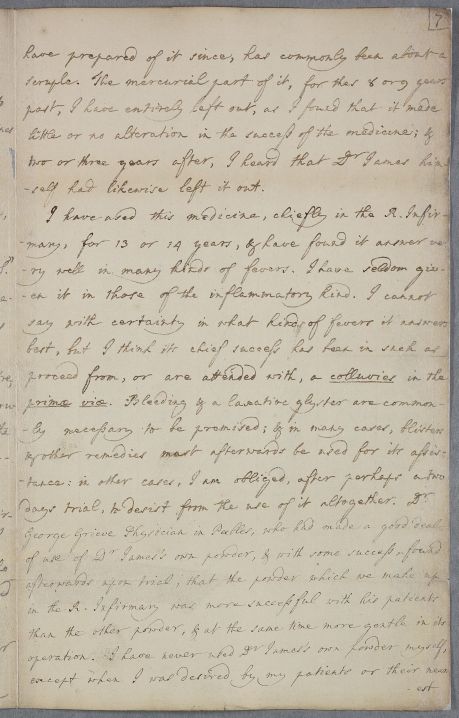 7
have prepared of it since, has commonly been about a
scruple. The mercurial part of it, for thes 8 or 9 years
past, I have entirely left out, as I found that it made
little or no alteration in the success of the medicine; &
two or three years after, I heard that Dr James him
-self had likewise left it out.
I have used this medicine, chiefly in the R. Infir-
-mary, for 13 or 14 years, & have found it answer ve-
-ry well in many kinds of fevers. I have seldom giv-
-en it in those of the inflammatory kind. I cannot
say with certainty in what kinds of fevers it answers
best, but I think its chief success has been in such as
proceed from, or are attended with, a colluvies in the
primæ viæ. Bleeding & a laxative glyster are common-
-ly necessary to be premised; & in many cases, blisters
& other remedies must afterwards be used for its assis-
-tance: in other cases, I am obliged, after perhaps a two
days trial, to desist from the use of it altogether. Dr
George Grieve Physician in Peebles, who had made a good deal
of use of Dr James's own powder, & with some success, found
afterwards upon trial, that the powder which we make up
in the R. Infirmary was more successful with his patients
than the other powder, & at the same time more gentle in its
operation. I have never used Dr James's own powder myself,
except when I was desired by my patients or their near
-est